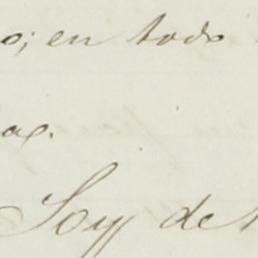 o; en todo
as.
Soy de